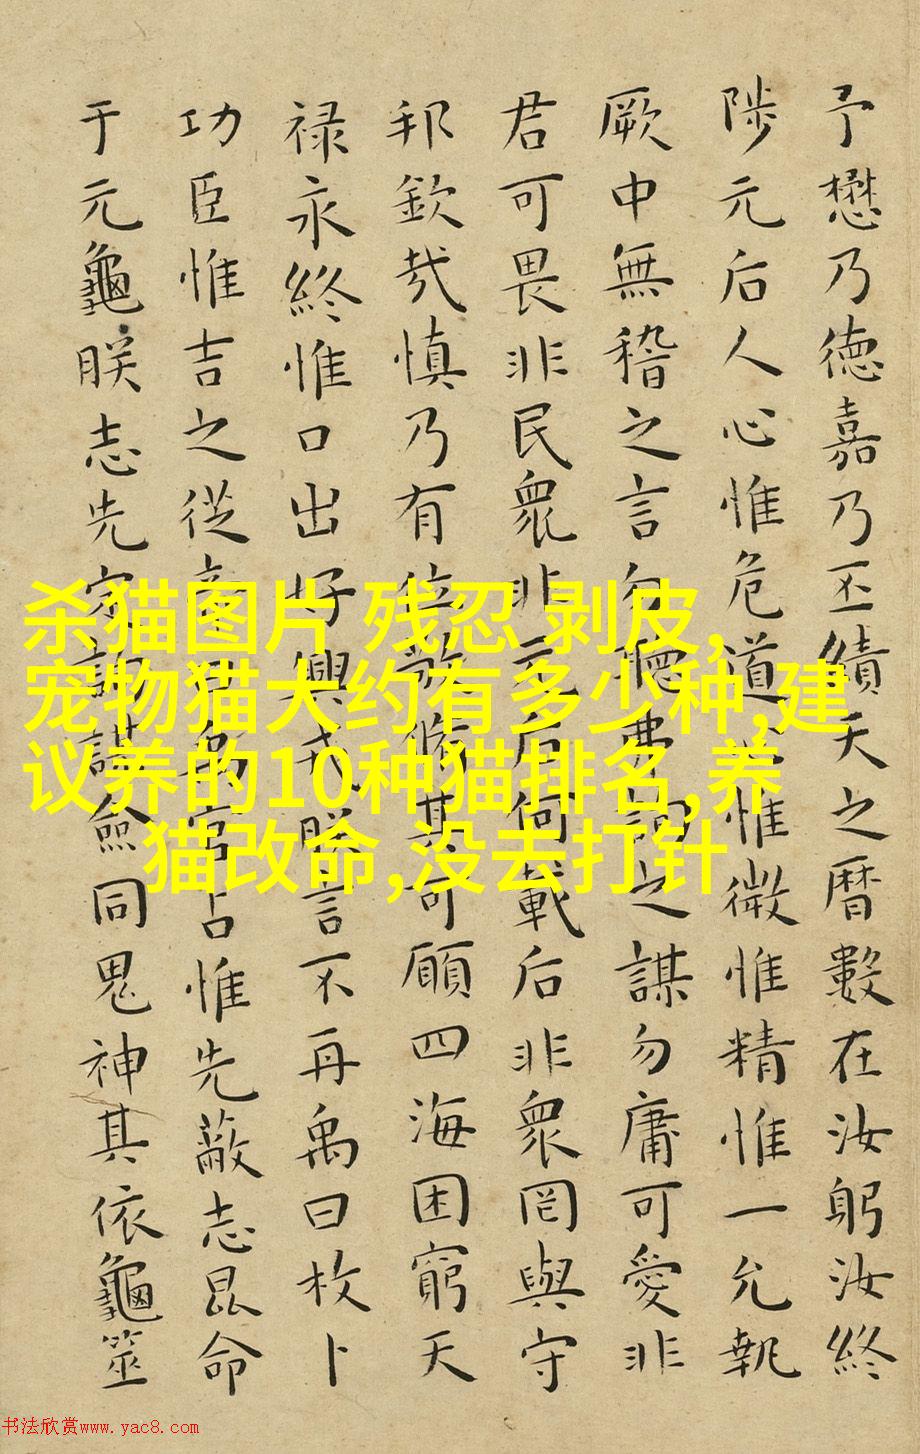 予懋乃德嘉乃丕績天之曆數在汝躬汝終
陟元后人心惟危道心惟微惟精惟一允執
厥中無稽之言勿聽弗詢之謀勿庸可愛非
君可畏非民衆非元后何載后非衆罔與守
邦欽哉慎乃有位敬脩其可願四海困窮天
禄永終惟口出好興戎朕言不再禹曰枚卜
功臣惟吉之從帝曰禹官占惟先蔽志昆命
于元龜朕志先定詢謀僉同鬼神其依龜筮
杀猫图片 残忍 剥皮,
宠物猫大约有多少种,建
议养的10种猫排名,养
猫改命,没去打针
书法欣赏www.yac8.com